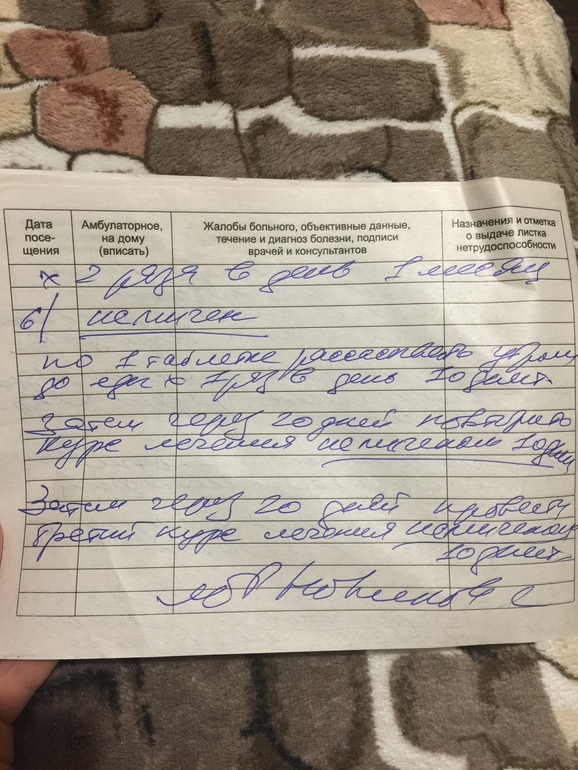 Дата посе- щения
Амбулаторное, на дому (вписать)
Жалобы больного, объективные данные, течение и диагноз болезни, подписи врачей и консультантов
Назначения и отметка о выдаче листка нетрудоспособности
х 2 раза в день 1 месяц
6/
по 1 таблетке рассасывать утром
до еды х 1 раз в день 10 дней.
Затем через 20 дней повторить
курс лечения 10 дней
Затем через 20 дней провести
третий курс лечения
10 дней.